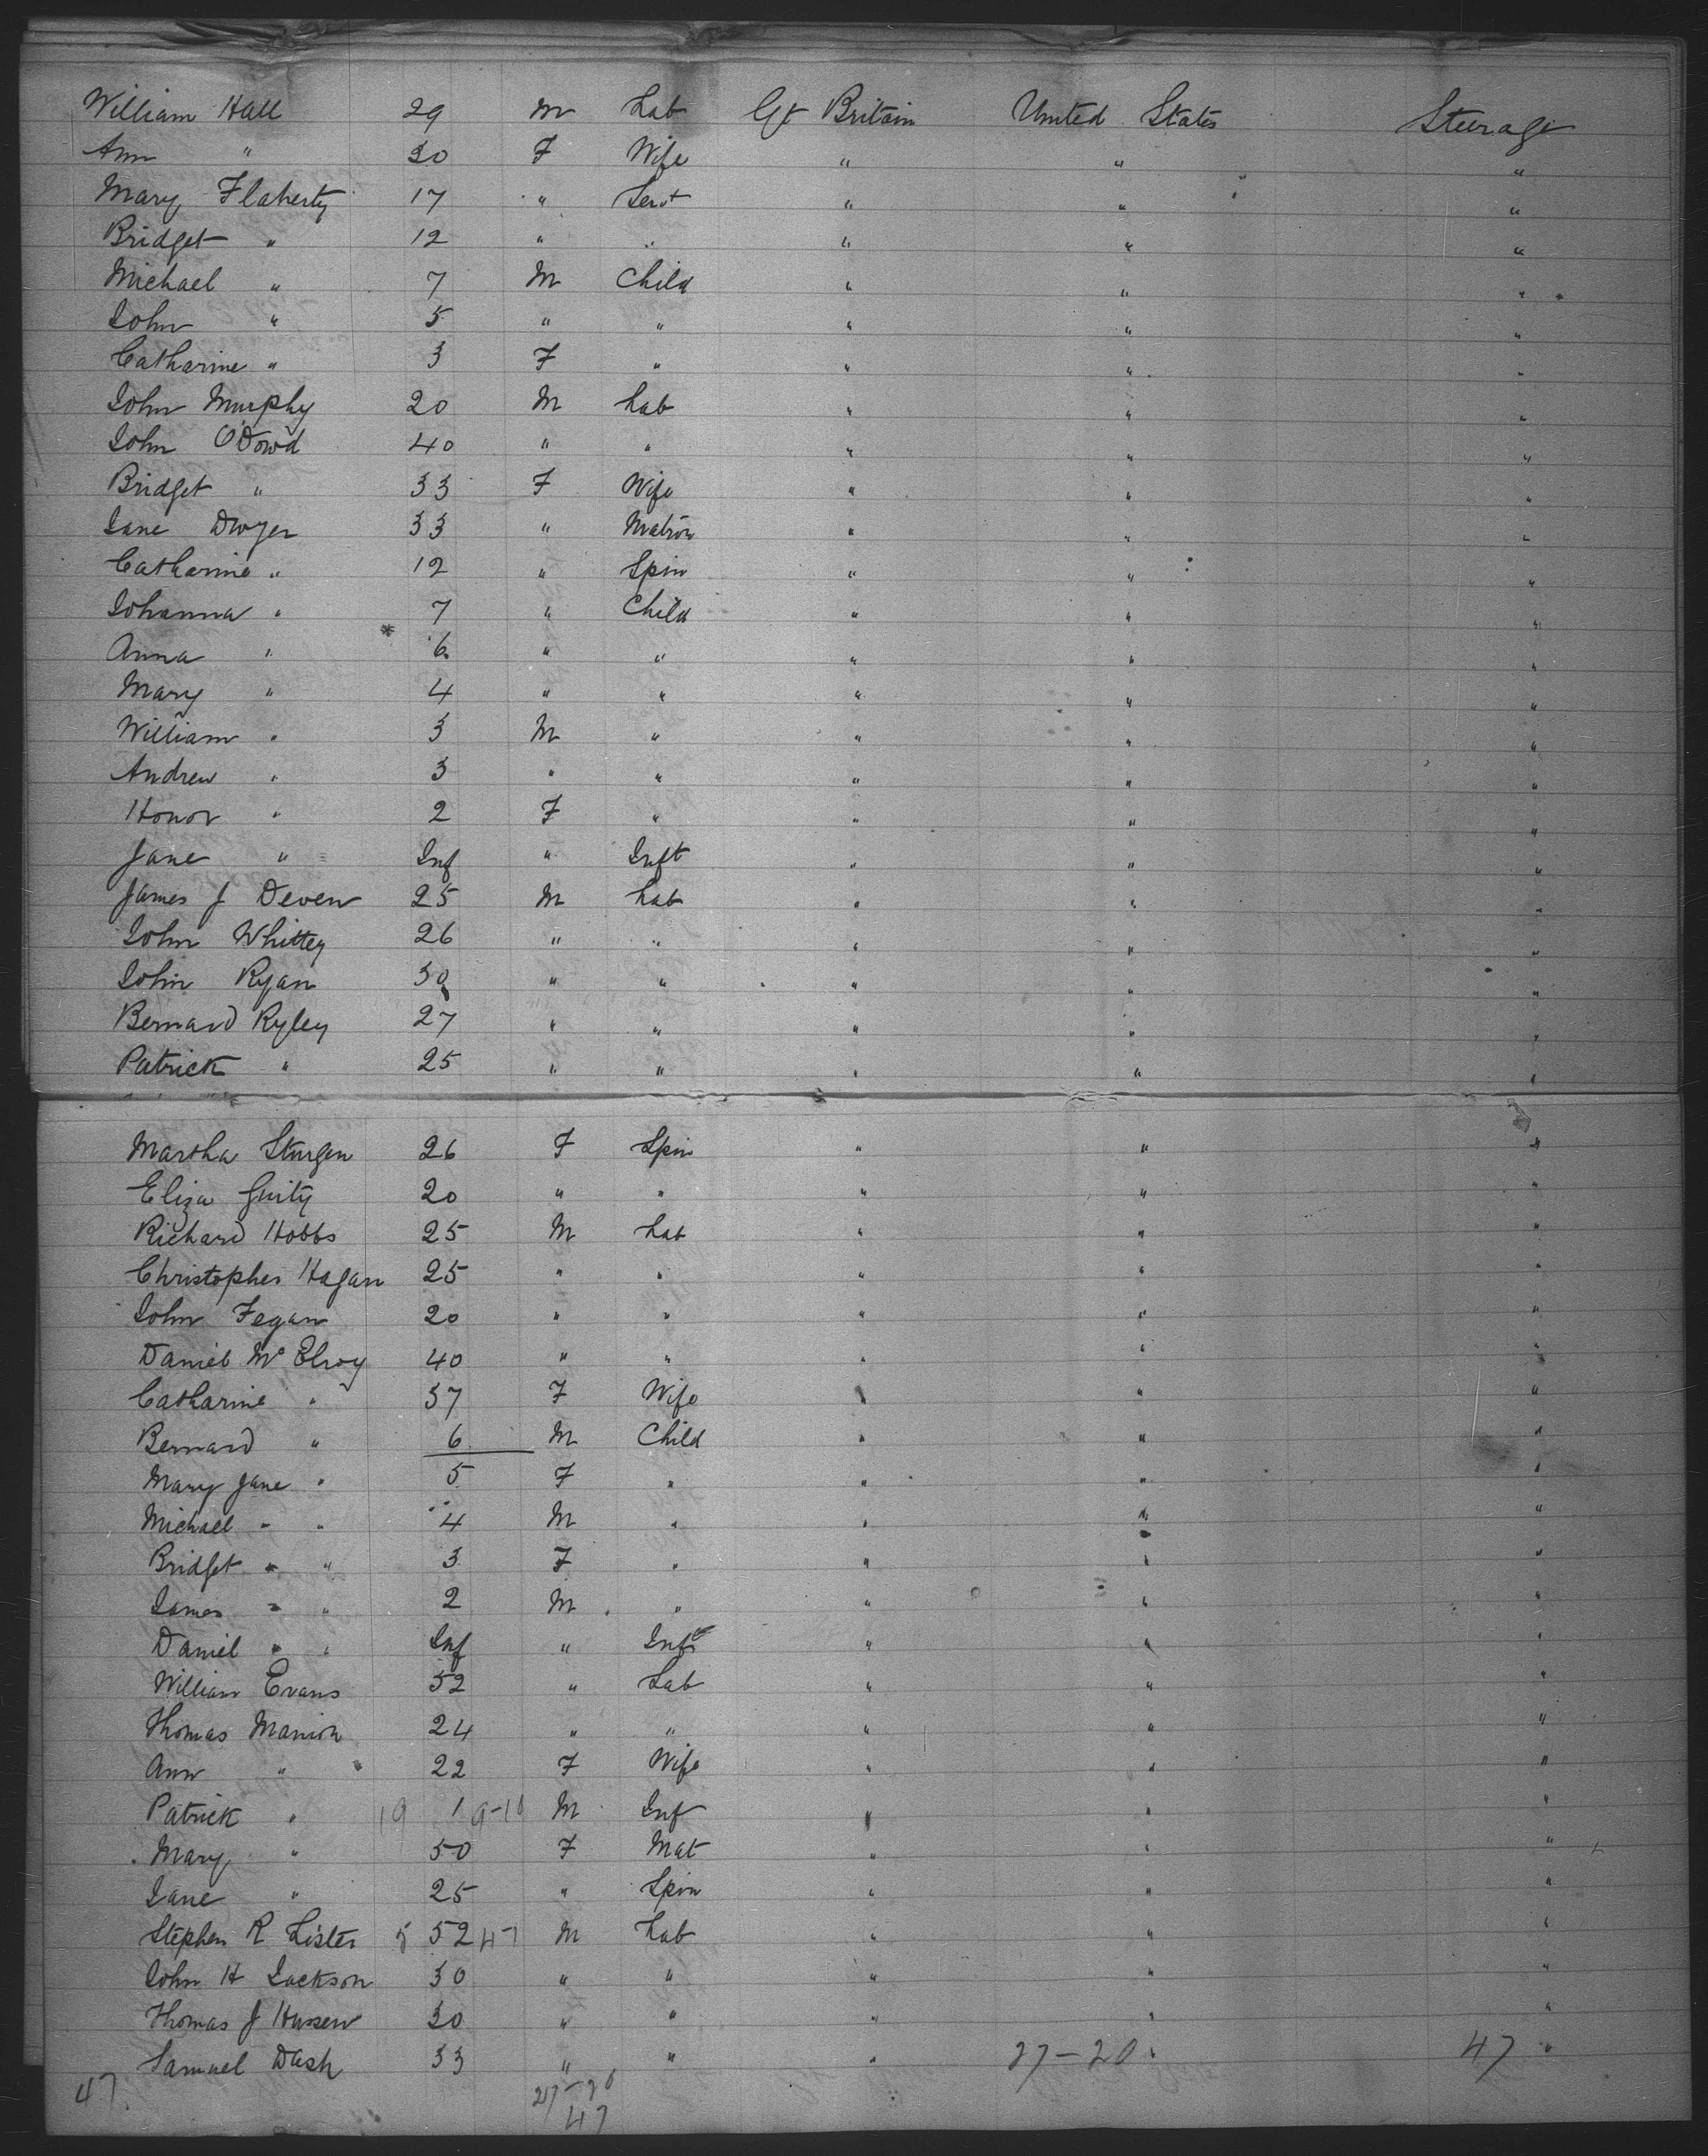 William Hall 29 M Lab Gt Britain United States Steerage
Ann " 30 F Wife " " "
Mary Flaherty 17 " Servt " " "
Bridget " 12 " " " " "
Michael " 7 M Child " " "
John " 5 " " " " "
Catharine " 3 F " " " "
John Murphy 20 M Lab " " "
John O'Dowd 40 " " " " "
Bridget " 33 F Wife " " "
Jane Dwyer 33 " Matron " " "
Catharine " 12 " Spin " " "
Johanna " 7 " Child " " "
Anna " 6 " " " " "
Mary " 4 " " " " "
William " 3 M " " " "
Andrew " 3 " " " " "
Honor " 2 F " " " "
Jane " Inf " Inft " " "
James J Deven 25 M Lab " " "
John Whittey 26 " " " " "
John Ryan 30 " " " " "
Bernard Ryley 27 " " " " "
Patrick " 25 " " " " "
Martha Sturgen 26 F Spin " " "
Eliza 20 " " " " "
Richard Hobbs 25 M Lab " " "
Christopher Hagan 25 " " " " "
John Fegan 20 " " " " "
Daniel Mc Elroy 40 " " " " "
Catharine " 37 F Wife " " "
Bernard " 6 M Child " " "
Mary Jane " 5 F " " " "
Michael " " 4 M " " " "
Bridget " " 3 F " " " "
James " " 2 M " " " "
Daniel " " Inf " Inft " " "
William Evans 52 " Lab " " "
Thomas Manion 24 " " " " "
Ann " 22 F Wife " " "
Patrick " 19 1 9-10 M Inf " " "
Mary " 50 F Mat " " "
Jane " 25 " Spin " " "
Stephen R Lister 5 52 47 M Lab " " "
John H Jackson 30 " " " " "
Thomas J 30 " " " " "
Samuel Dash 33 " " " 27-20 " 47 "
47 27-20
47